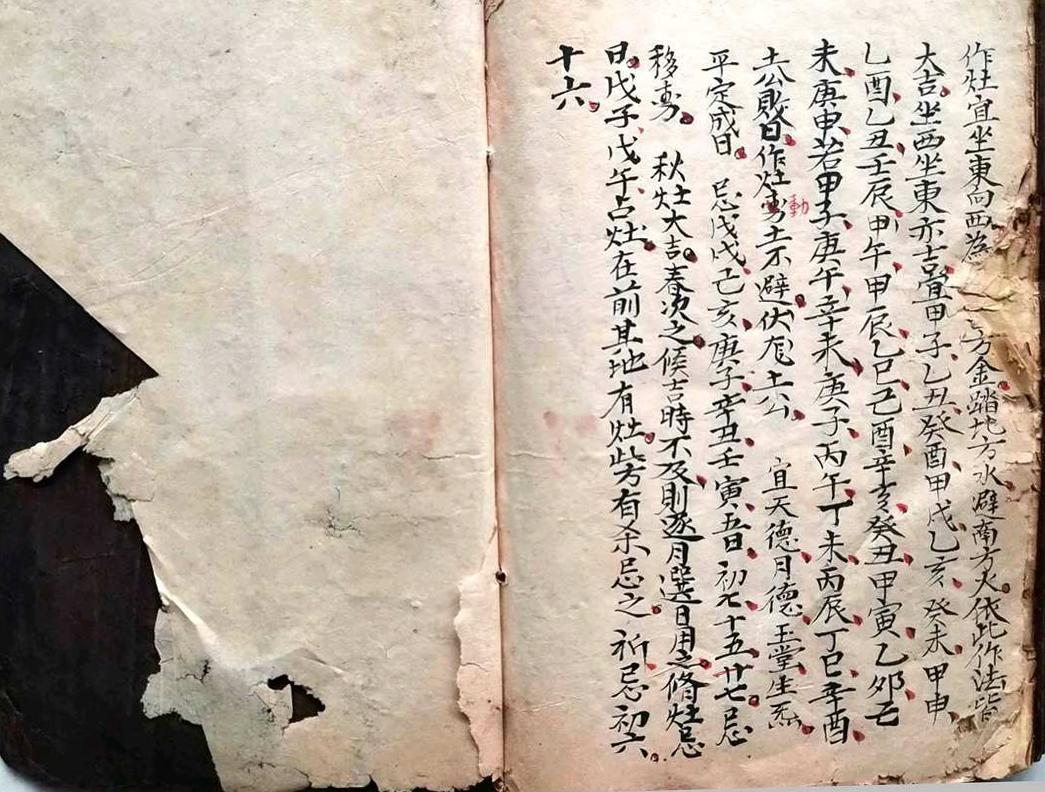 作灶宜坐東向西為方金踏地方水避南方火依此作法皆
大吉坐西坐東亦吉宜甲子乙丑癸酉甲戌乙亥癸未甲申
乙酉乙丑壬辰甲午甲辰乙巳己酉辛亥癸丑甲寅乙卯己
未庚申若甲子庚午辛未庚子丙午丁未丙辰丁巳辛酉
土公敗日作灶動土不避伏龙土公 宜天德月德玉堂生炁
平定成日 忌戊戌己亥庚子辛丑壬寅五日初七十五廿七忌
移動 秋灶大吉春次之候吉時不及則逐月選日用之脩灶忌
日戊子戊午占灶在前其地有灶此方有杀忌之 祈忌初六
十六